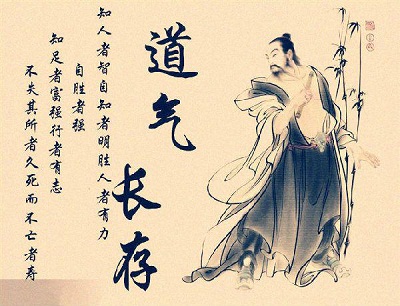 道气长存
知人者智自知者明胜人者有力
自胜者强
知足者富强行者有志
不失其所者久死而不亡者寿